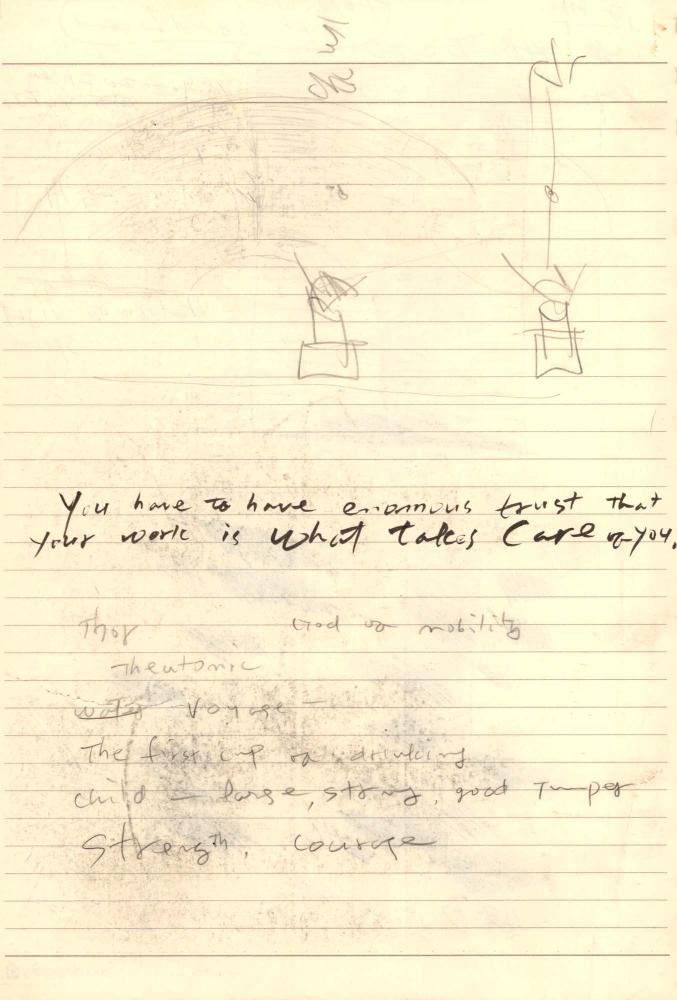 You have to have enormous trust that
your work is what takes care of you.
Thor God of mobility
Theutonic
water Voyage –
The first cup of drinking
child – large, strong, good Temper
Strength, Courage